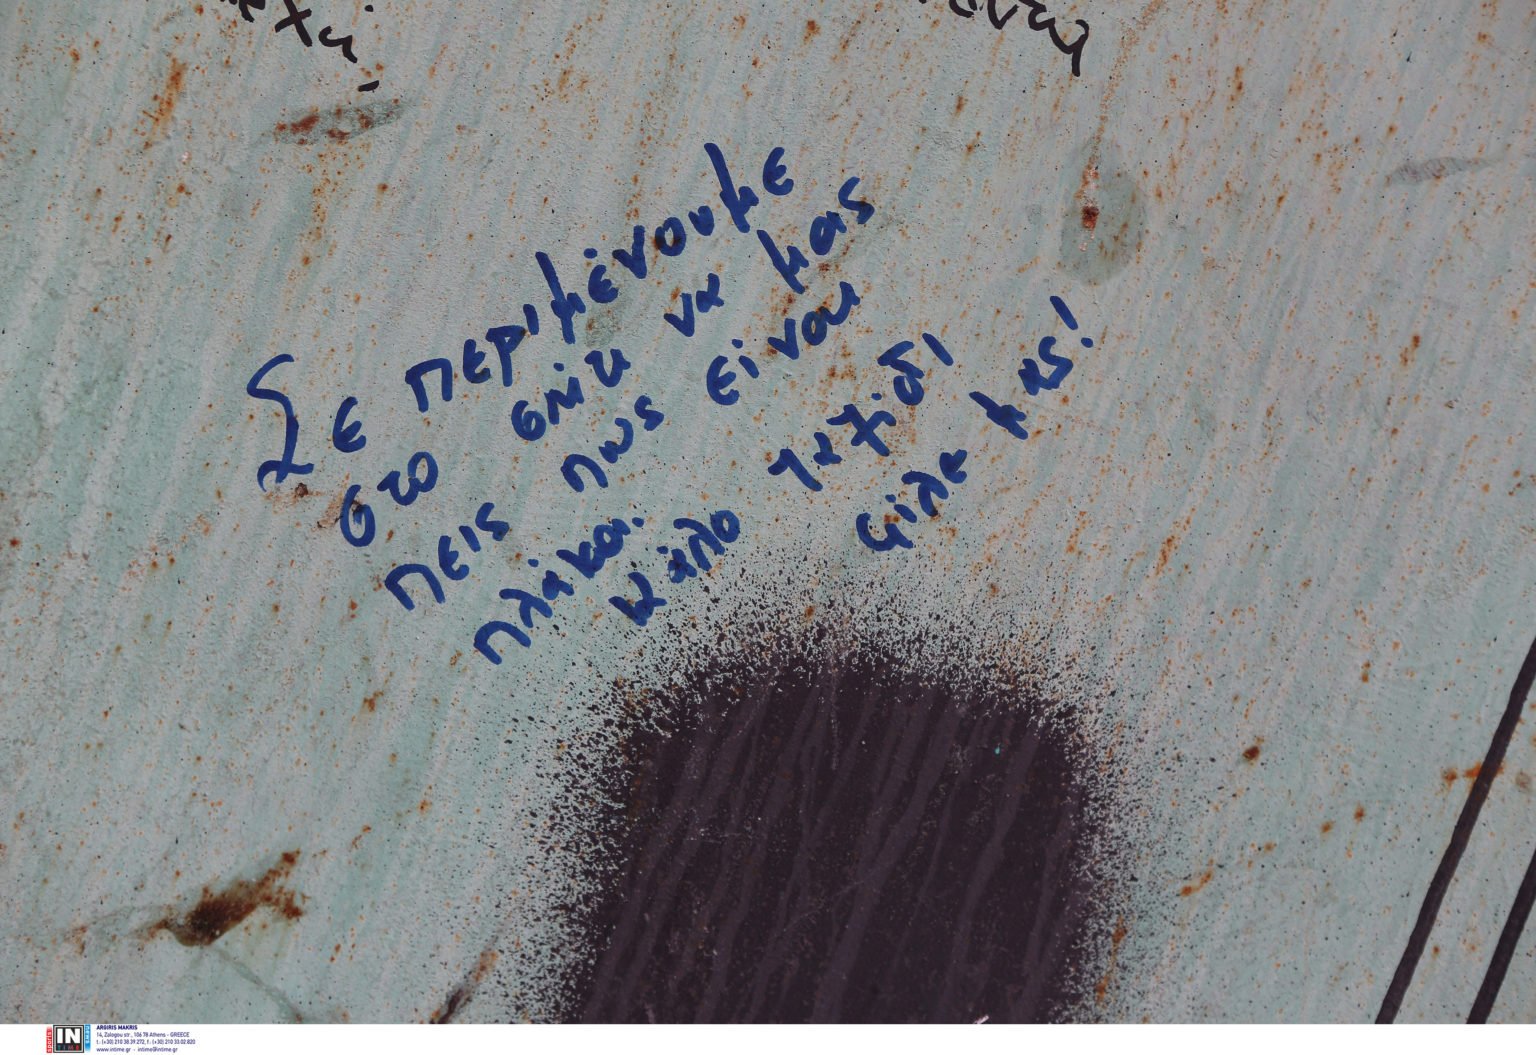 Σε περιμένουμε
στο σπίτι να μας
πεις πως είναι
πλάκα.
Καλό ταξίδι
φίλε μας!
sports
IN
TIME
ARGIRIS MAKRIS
14, Zalogou str., 106 78 Athens - GREECE
t.: (+30) 210 38.39 272, f.: (+30) 210 33.02 820
www.intime.gr - intime@intime.gr